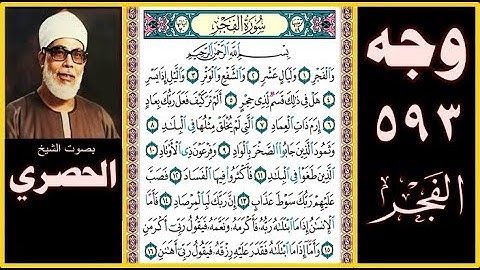 وجه
٥٩٣
الفجر
سُورَةُ الفَجْرِ
بِسْمِ اللَّهِ الرَّحْمَٰنِ الرَّحِيمِ
وَالْفَجْرِ ١ وَلَيَالٍ عَشْرٍ ٢ وَالشَّفْعِ وَالْوَتْرِ ٣ وَاللَّيْلِ إِذَا يَسْرِ
٤ هَلْ فِي ذَٰلِكَ قَسَمٌ لِّذِي حِجْرٍ ٥ أَلَمْ تَرَ كَيْفَ فَعَلَ رَبُّكَ بِعَادٍ
٦ إِرَمَ ذَاتِ الْعِمَادِ ٧ الَّتِي لَمْ يُخْلَقْ مِثْلُهَا فِي الْبِلَادِ ٨
وَثَمُودَ الَّذِينَ جَابُوا الصَّخْرَ بِالْوَادِ ٩ وَفِرْعَوْنَ ذِي الْأَوْتَادِ ١٠
الَّذِينَ طَغَوْا فِي الْبِلَادِ ١١ فَأَكْثَرُوا فِيهَا الْفَسَادَ ١٢ فَصَبَّ
عَلَيْهِمْ رَبُّكَ سَوْطَ عَذَابٍ ١٣ إِنَّ رَبَّكَ لَبِالْمِرْصَادِ ١٤ فَأَمَّا
الْإِنسَانُ إِذَا مَا ابْتَلَاهُ رَبُّهُ فَأَكْرَمَهُ وَنَعَّمَهُ فَيَقُولُ رَبِّي أَكْرَمَنِ
١٥ وَأَمَّا إِذَا مَا ابْتَلَاهُ فَقَدَرَ عَلَيْهِ رِزْقَهُ فَيَقُولُ رَبِّي أَهَانَنِ ١٦
بصوت الشيخ
الحصري